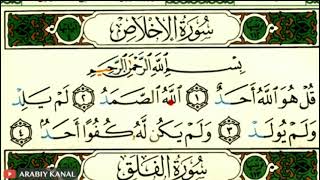 سُورَةُ الإِخْلَاصِ
بِسْمِ اللَّهِ الرَّحْمَٰنِ الرَّحِيمِ
قُلْ هُوَ اللَّهُ أَحَدٌ ١ اللَّهُ الصَّمَدُ ٢ لَمْ يَلِدْ
وَلَمْ يُولَدْ ٣ وَلَمْ يَكُن لَّهُ كُفُوًا أَحَدٌ ٤
سُورَةُ الْفَلَقِ
ARABIY KANAL